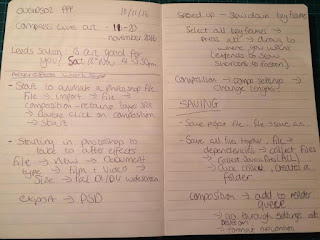 10/11/16
Compress live out 18-20
november 2016
Leeds Salon is art good for
you, Sat 4.30pm
- Start to animate a photoshop file
File → import → file →
composition - retaining layer size
→ Double click on composition
→ Start
- Starting in photoshop to
take to after effects
File → New → Document
type → film + video →
Size → Pal D1/DV widescreen
export → PSD
Speed up - slow down keyframe
Select all keyframes →
press alt → drag to
where you want
(extends to slow
shortens to fasten)
Composition → comp settings →
change length
SAVING
- Save project file - file → save as
- Save all files together - file →
dependencies → collect files
→ collect source files (ALL)
→ click collect, create a
folder
composition → add to render
queue
→ go through settings at
bottom
→ format